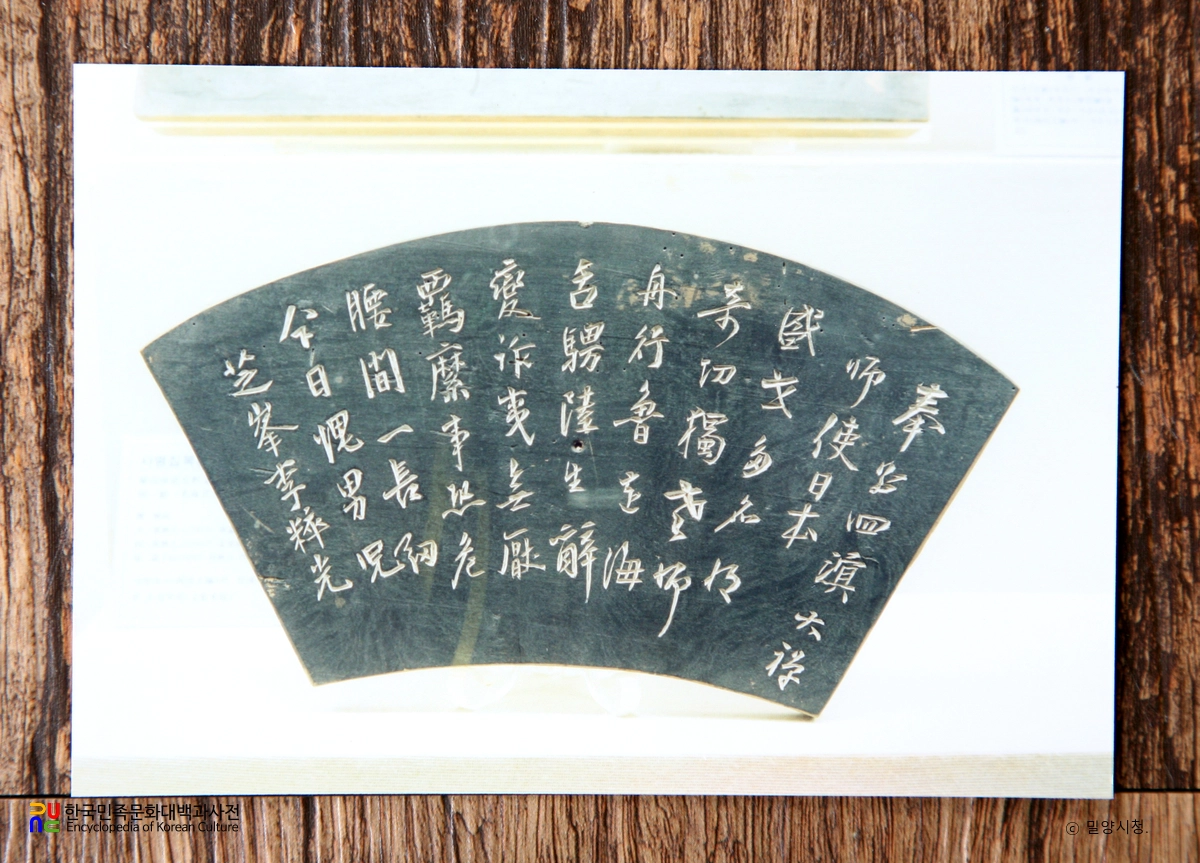 奉呈四溟大禪
師使日本
盛世多名將
奇功獨老師
舟行魯連海
舌騁陸生辭
變詐夷無厭
羈縻事恐危
腰間一長釰
今日愧男兒
芝峯李睟光
한국민족문화대백과사전
Encyclopedia of Korean Culture
ⓒ 밀양시청.